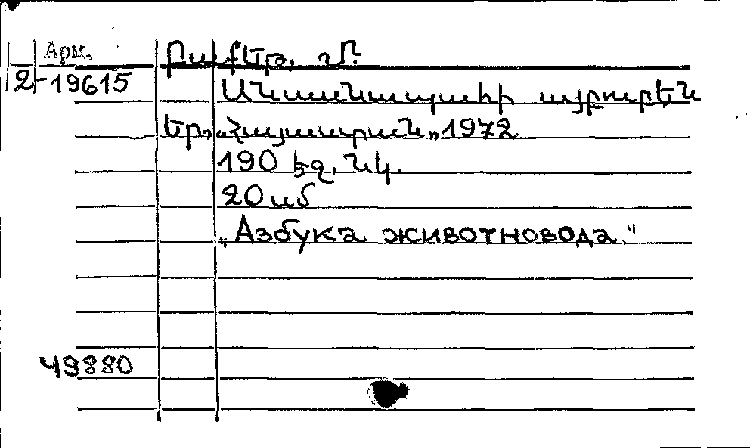 Арм.
2-19615
Անասնապահի այբուբեն
Եր., «Հայաստան», 1972
190 էջ, նկ.
20 սմ
„Азбука животновода."
49880